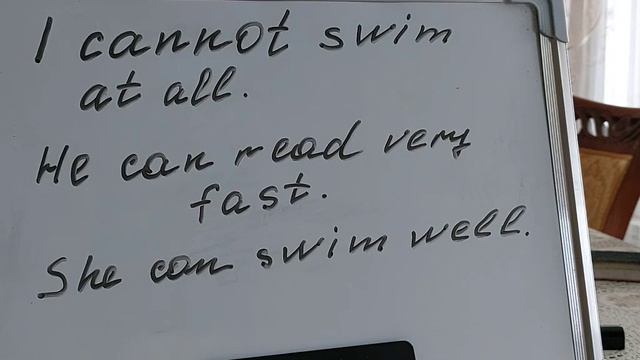 I cannot swim
at all.
He can read very
fast.
She can swim well.